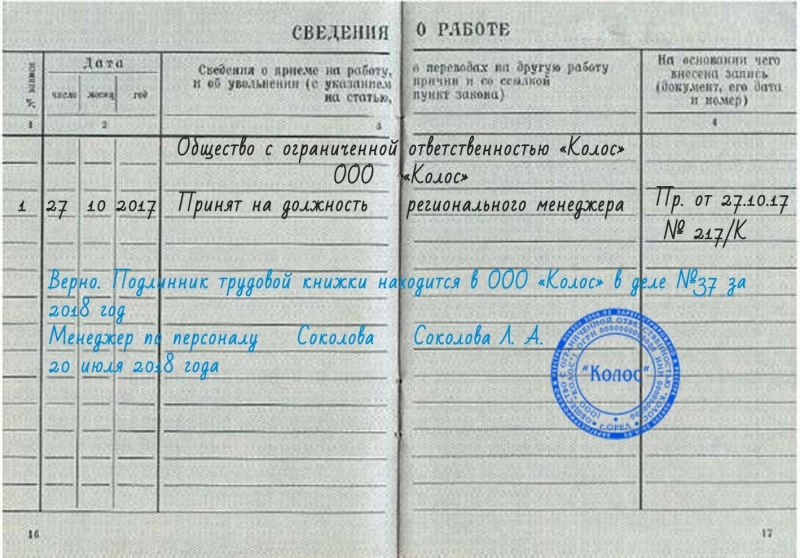 СВЕДЕНИЯ О РАБОТЕ
№ записи
Дата
число месяц год
Сведения о приеме на работу, о переводах на другую работу
и об увольнении (с указанием причин и со ссылкой
на статью, пункт закона)
На основании чего
внесена запись
(документ, его дата
и номер)
1 2 3 4
Общество с ограниченной ответственностью «Колос»
ООО «Колос»
1 27 10 2017 Принят на должность регионального менеджера Пр. от 27.10.17
№ 217/К
Верно. Подлинник трудовой книжки находится в ООО «Колос» в деле №37 за
2018 год
Менеджер по персоналу Соколова Соколова Л. А.
20 июля 2018 года
"Колос"
ОБЩЕСТВО С ОГРАНИЧЕННОЙ ОТВЕТСТВЕННОСТЬЮ "КОЛОС"
(ООО "КОЛОС") ОГРН ИНН
Г.ОРЕЛ
16 17